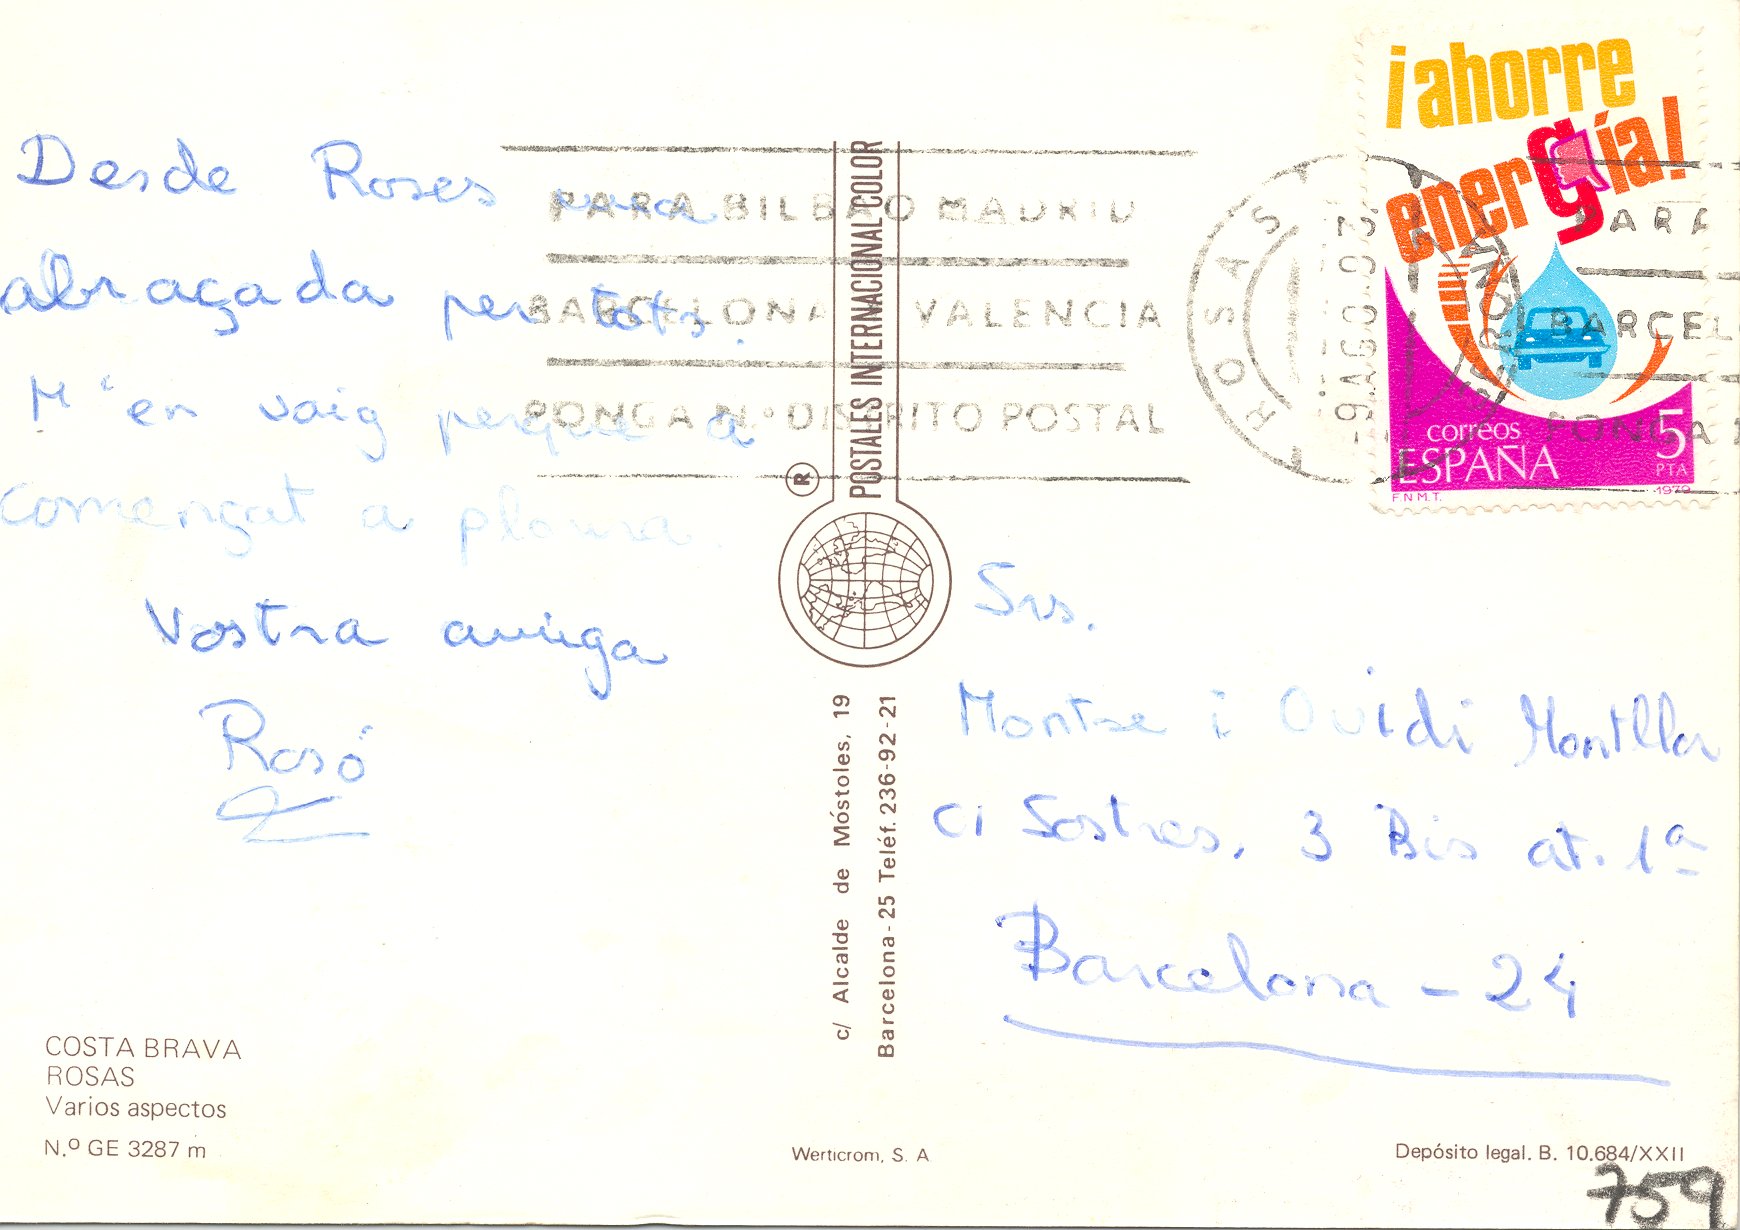 Desde Roses una
abraçada per tots.
M'en vaig perque a
començat a ploura.
Vostra amiga
Rosó
COSTA BRAVA
ROSAS
Varios aspectos
N.º GE 3287 m
PARA BILBAO MADRID
BARCELONA VALENCIA
PONGA N.º DISTRITO POSTAL
POSTALES INTERNACIONAL COLOR
®
c/ Alcalde de Móstoles, 19
Barcelona-25 Teléf. 236-92-21
Werticrom, S. A.
ROSAS
¡ahorre
energía!
PARA
BARCEL
PONGA
correos
ESPAÑA
5
PTA
F.N.M.T.
1979
Srs.
Montse i Ovidi Montllor
C/ Sostres, 3 Bis at. 1ª
Barcelona - 24
Depósito legal. B. 10.684/XXII
759